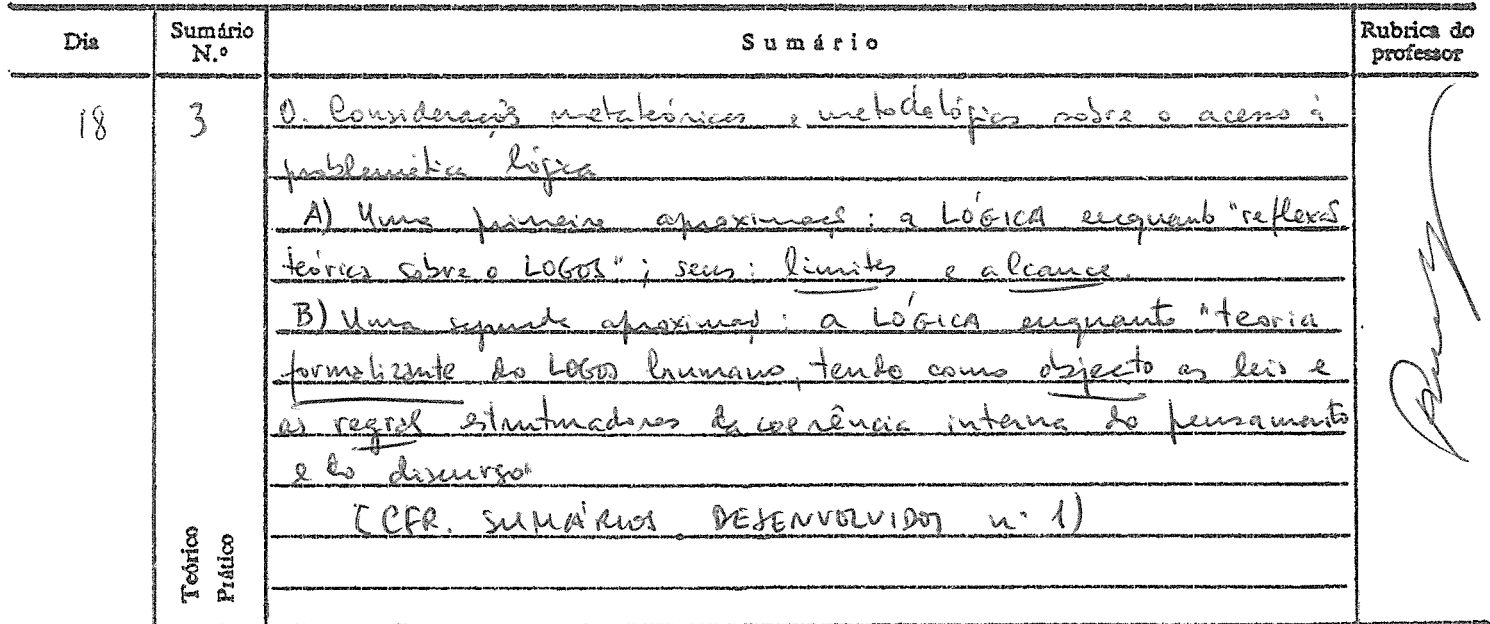 Dia Sumário N.º Sumário Rubrica do professor
18 3 0. Considerações metateóricas e metodológicas sobre o acesso à
problemática lógica
A) Uma primeira aproximação: a LÓGICA enquanto "reflexão
teórica sobre o LOGOS"; seus: limites e alcance.
B) Uma segunda aproximação: a LÓGICA enquanto "teoria
formalizante do LOGOS humano, tendo como objecto as leis e
as regras estruturadoras da coerência interna do pensamento
e do discurso"
[CFR. SUMÁRIOS DESENVOLVIDOS n.º 1)
Teórico
Prático